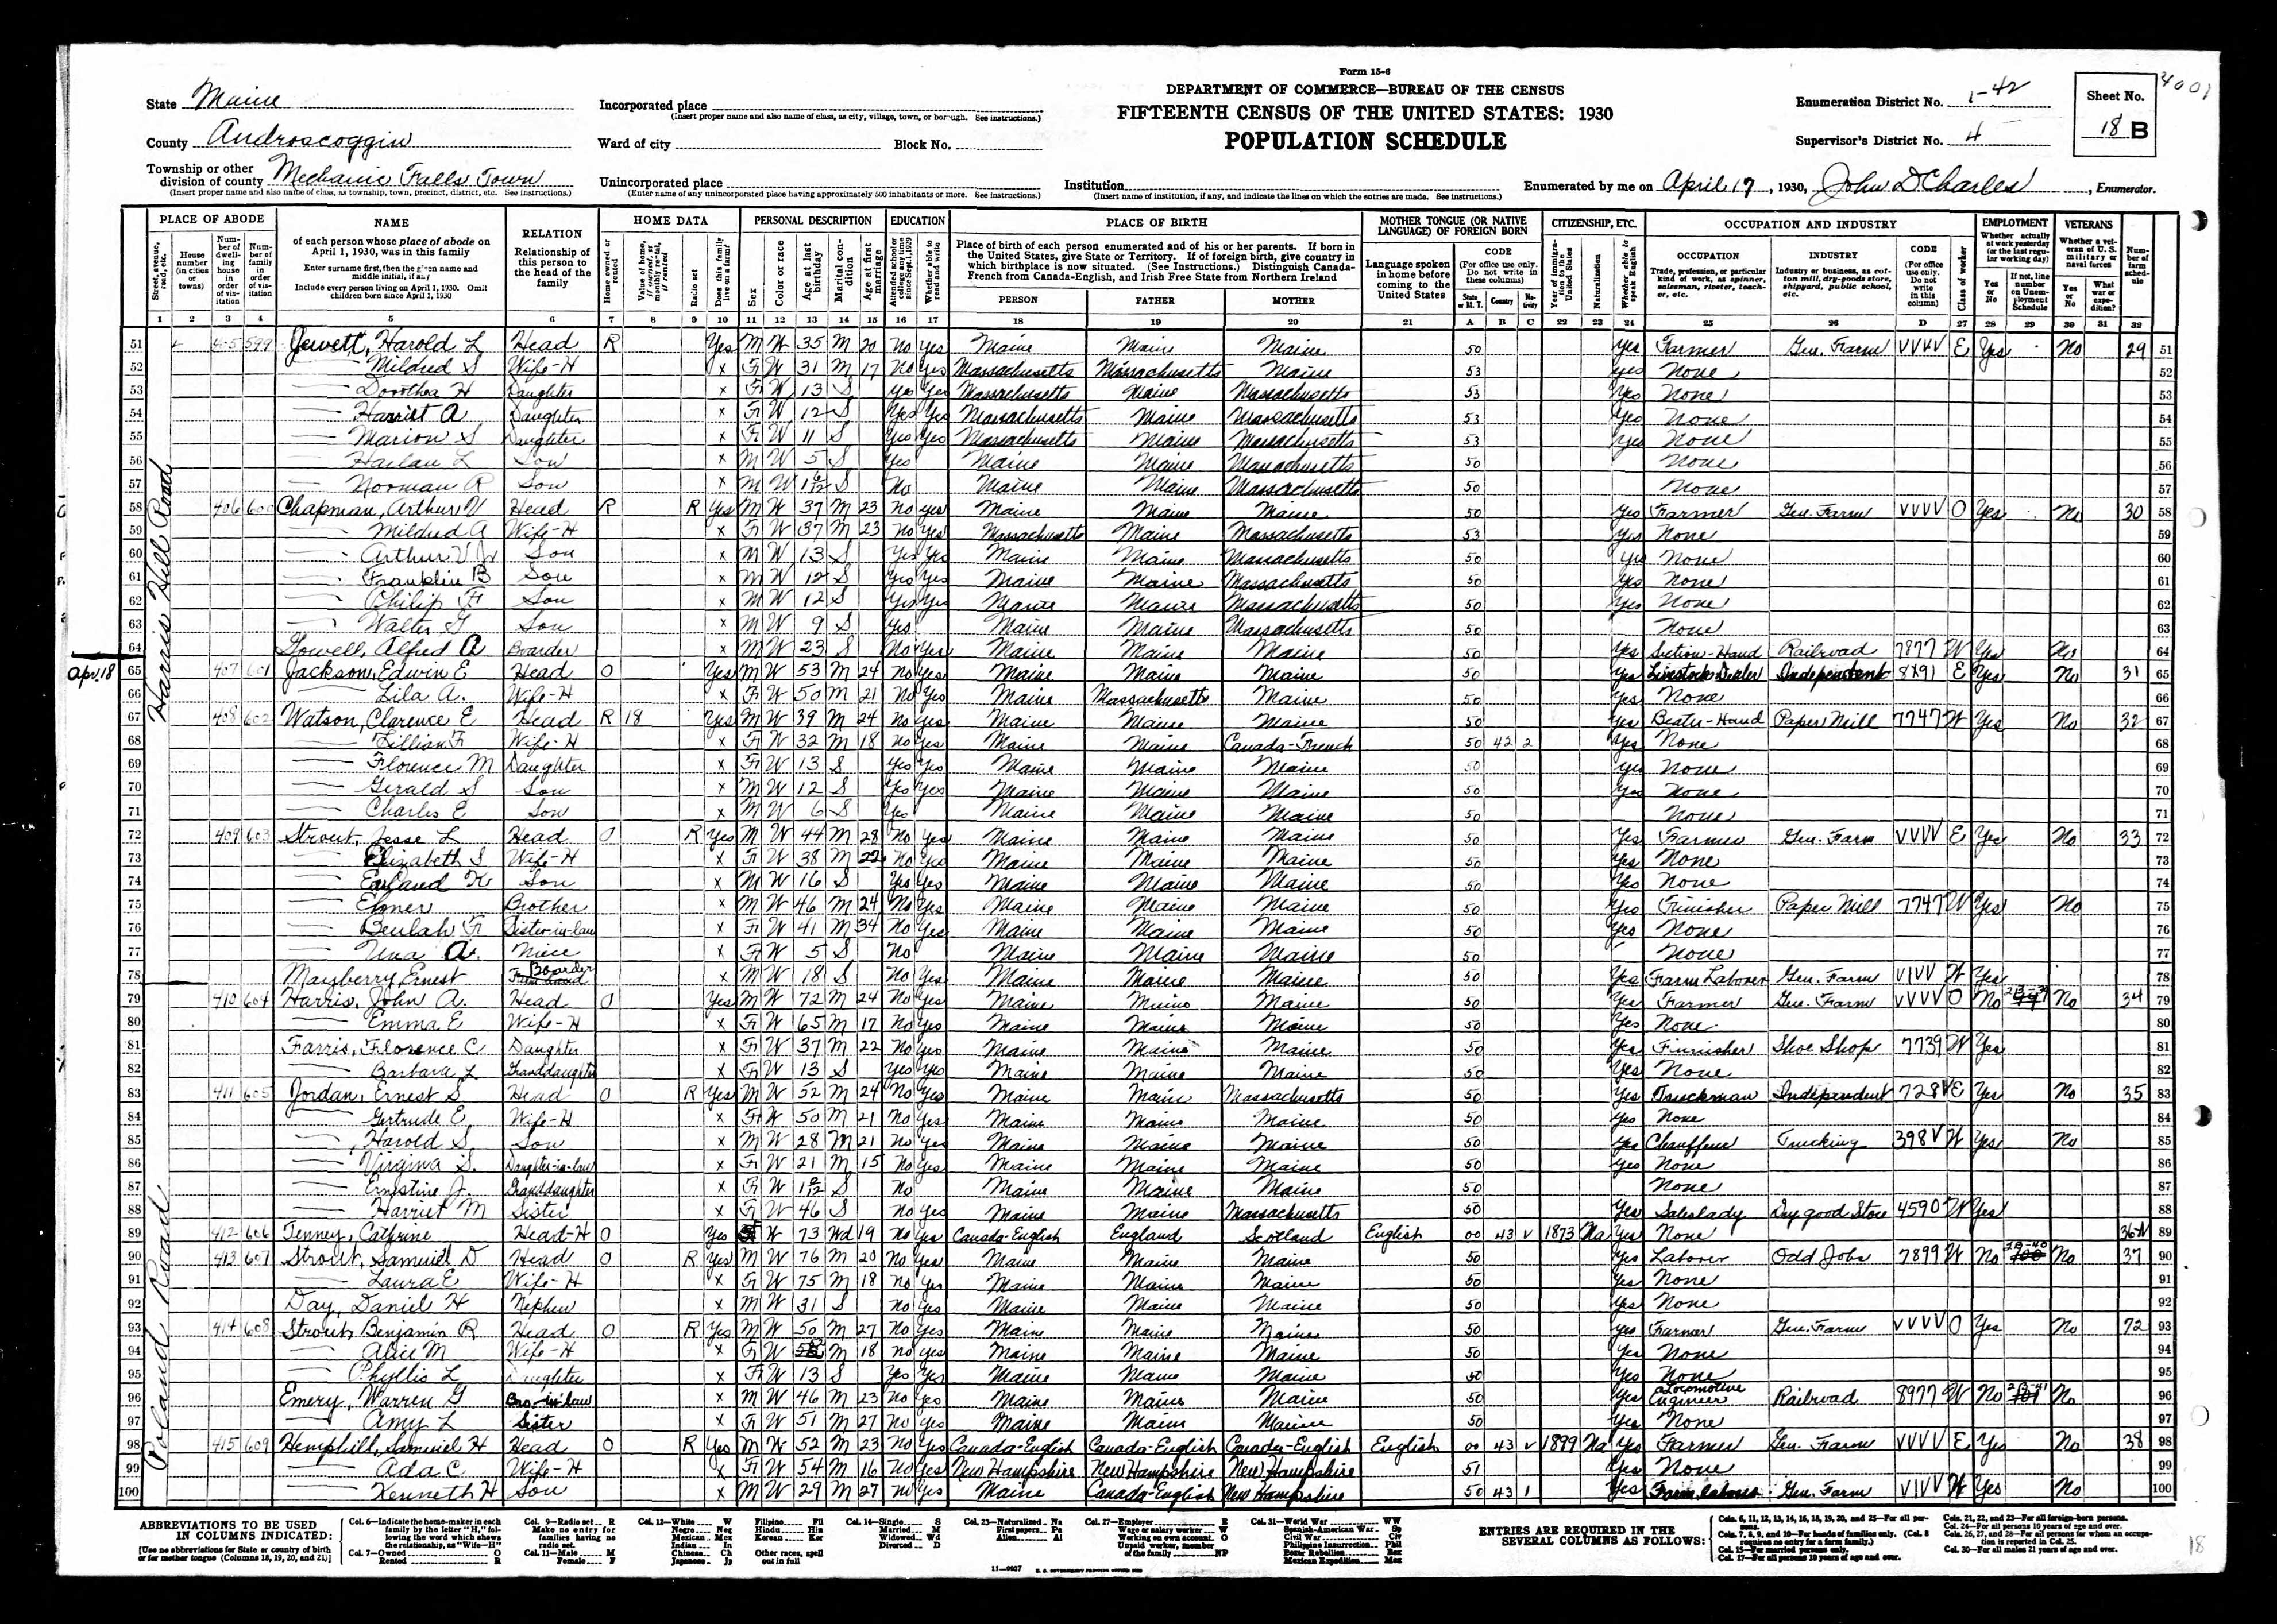 Form 15-6
4001
DEPARTMENT OF COMMERCE—BUREAU OF THE CENSUS
FIFTEENTH CENSUS OF THE UNITED STATES: 1930
POPULATION SCHEDULE
State Maine
County Androscoggin
Township or other division of county Mechanic Falls Town
(Insert proper name and also name of class, as township, town, precinct, district, etc. See instructions.)
Incorporated place
(Insert proper name and also name of class, as city, village, town, or borough. See instructions.)
Ward of city Block No.
Unincorporated place
(Enter name of any unincorporated place having approximately 500 inhabitants or more. See instructions.)
Institution
(Insert name of institution, if any, and indicate the lines on which the entries are made. See instructions.)
Enumeration District No. 1-42
Supervisor's District No. 4
Sheet No. 18 B
Enumerated by me on April 17, 1930, John D Charles, Enumerator.
PLACE OF ABODE NAME RELATION HOME DATA PERSONAL DESCRIPTION EDUCATION PLACE OF BIRTH MOTHER TONGUE (OR NATIVE LANGUAGE) OF FOREIGN BORN CITIZENSHIP, ETC. OCCUPATION AND INDUSTRY EMPLOYMENT VETERANS
PERSON FATHER MOTHER
1 2 3 4 5 6 7 8 9 10 11 12 13 14 15 16 17 18 19 20 21 A B C 22 23 24 25 26 D 27 28 29 30 31 32
Harris Hill Road
51 405 599 Jewett, Harold L Head R Yes M W 35 M 20 No Yes Maine Maine Maine 50 Yes Farmer Gen. Farm VVVV E Yes No 29 51
52 Mildred S Wife-H x F W 31 M 17 No Yes Massachusetts Massachusetts Maine 53 Yes None 52
53 Dorothea H Daughter x F W 13 S Yes Yes Massachusetts Maine Massachusetts 53 Yes None 53
54 Harriet A Daughter x F W 12 S Yes Yes Massachusetts Maine Massachusetts 53 Yes None 54
55 Marion S Daughter x F W 11 S Yes Yes Massachusetts Maine Massachusetts 53 Yes None 55
56 Harlan L Son x M W 5 S Yes Maine Maine Massachusetts 50 None 56
57 Norman R Son x M W 1 6/12 S No Maine Maine Massachusetts 50 None 57
58 406 600 Chapman, Arthur V Head R R Yes M W 37 M 23 No Yes Maine Maine Maine 50 Yes Farmer Gen. Farm VVVV O Yes No 30 58
59 Mildred A Wife-H x F W 37 M 23 No Yes Massachusetts Maine Massachusetts 53 Yes None 59
60 Arthur V Jr Son x M W 13 S Yes Yes Maine Maine Massachusetts 50 Yes None 60
61 Franklin B Son x M W 12 S Yes Yes Maine Maine Massachusetts 50 Yes None 61
62 Philip F Son x M W 12 S Yes Yes Maine Maine Massachusetts 50 Yes None 62
63 Walter G Son x M W 9 S Yes Maine Maine Massachusetts 50 None 63
64 Lowell, Alfred A Boarder x M W 23 S No Yes Maine Maine Maine 50 Yes Section-Hand Railroad 7877 W Yes No 64
Apr. 18
65 407 601 Jackson, Edwin E Head O Yes M W 53 M 24 No Yes Maine Maine Maine 50 Yes Livestock Dealer Independent 8X91 E Yes No 31 65
66 Lila A. Wife-H x F W 50 M 21 No Yes Maine Massachusetts Maine 50 Yes None 66
67 408 602 Watson, Clarence E Head R 18 Yes M W 39 M 24 No Yes Maine Maine Maine 50 Yes Beater-Hand Paper Mill 7747 W Yes No 32 67
68 Lillian F Wife-H x F W 32 M 18 No Yes Maine Maine Canada-French 50 42 2 Yes None 68
69 Florence M Daughter x F W 13 S Yes Yes Maine Maine Maine 50 Yes None 69
70 Gerald S Son x M W 12 S Yes Yes Maine Maine Maine 50 Yes None 70
71 Charles E Son x M W 6 S Yes Maine Maine Maine 50 None 71
72 409 603 Strout, Jesse L Head O R Yes M W 44 M 28 No Yes Maine Maine Maine 50 Yes Farmer Gen. Farm VVVV E Yes No 33 72
73 Elizabeth S Wife-H x F W 38 M 22 No Yes Maine Maine Maine 50 Yes None 73
74 Earland K Son x M W 16 S Yes Yes Maine Maine Maine 50 Yes None 74
75 Elmer Brother x M W 46 M 24 No Yes Maine Maine Maine 50 Yes Finisher Paper Mill 7747 W Yes No 75
76 Beulah F Sister-in-law x F W 41 M 34 No Yes Maine Maine Maine 50 Yes None 76
77 Una A. Niece x F W 5 S No Maine Maine Maine 50 None 77
78 Mayberry Ernest Boarder x M W 18 S No Yes Maine Maine Maine 50 Yes Farm Laborer Gen. Farm VIVV W Yes 78
79 410 604 Harris, John A. Head O Yes M W 72 M 24 No Yes Maine Maine Maine 50 Yes Farmer Gen. Farm VVVV O No No 34 79
80 Emma E Wife-H x F W 65 M 17 No Yes Maine Maine Maine 50 Yes None 80
81 Farris, Florence C Daughter x F W 37 M 22 No Yes Maine Maine Maine 50 Yes Finisher Shoe Shop 7739 W Yes 81
82 Barbara L Granddaughter x F W 13 S Yes Yes Maine Maine Maine 50 Yes None 82
Poland Road
83 411 605 Jordan, Ernest S Head O R Yes M W 52 M 24 No Yes Maine Maine Massachusetts 50 Yes Truckman Independent 728V E Yes No 35 83
84 Gertrude E Wife-H x F W 50 M 21 No Yes Maine Maine Maine 50 Yes None 84
85 Harold S Son x M W 28 M 21 No Yes Maine Maine Maine 50 Yes Chauffeur Trucking 398V W Yes No 85
86 Virginia S. Daughter-in-law x F W 21 M 15 No Yes Maine Maine Maine 50 Yes None 86
87 Ernestine J. Granddaughter x F W S No Maine Maine Maine 50 None 87
88 Harriet M Sister x F W 46 S No Yes Maine Maine Massachusetts 50 Yes Saleslady Dry good Store 4590 W Yes 88
89 412 606 Tenney, Cathrine Head-H O Yes F W 73 Wd 19 No Yes Canada-English England Scotland English 00 43 V 1873 Na Yes None 36-N 89
90 413 607 Strout, Samuel D Head O R Yes M W 76 M 20 No Yes Maine Maine Maine 50 Yes Laborer Odd Jobs 7899 W No No 37 90
91 Laura E Wife-H x F W 75 M 18 No Yes Maine Maine Maine 50 Yes None 91
92 Day, Daniel H Nephew x M W 31 S No Yes Maine Maine Maine 50 Yes None 92
93 414 608 Strout, Benjamin R Head O R Yes M W 50 M 27 No Yes Maine Maine Maine 50 Yes Farmer Gen. Farm VVVV O Yes No 72 93
94 Alice M Wife-H x F W M 18 No Yes Maine Maine Maine 50 Yes None 94
95 Phyllis L Daughter x F W 13 S Yes Yes Maine Maine Maine 50 Yes None 95
96 Emery, Warren G Bro-in-law x M W 46 M 23 No Yes Maine Maine Maine 50 Yes Locomotive Engineer Railroad 8977 W No No 96
97 Amy L Sister x F W 51 M 27 No Yes Maine Maine Maine 50 Yes None 97
98 415 609 Hemphill, Samuel H Head O R Yes M W 52 M 23 No Yes Canada-English Canada-English Canada-English English 00 43 V 1899 Na Yes Farmer Gen. Farm VVVV E Yes No 38 98
99 Ada C Wife-H x F W 54 M 16 No Yes New Hampshire New Hampshire New Hampshire 51 Yes None 99
100 Kenneth H Son x M W 29 M 27 No Yes Maine Canada-English New Hampshire 50 43 1 Yes Farm laborer Gen. Farm VIVV W Yes No 100
ABBREVIATIONS TO BE USED IN COLUMNS INDICATED:
[Use no abbreviations for State or country of birth or for mother tongue (Columns 18, 19, 20, and 21)]
ENTRIES ARE REQUIRED IN THE SEVERAL COLUMNS AS FOLLOWS:
11—9927
18